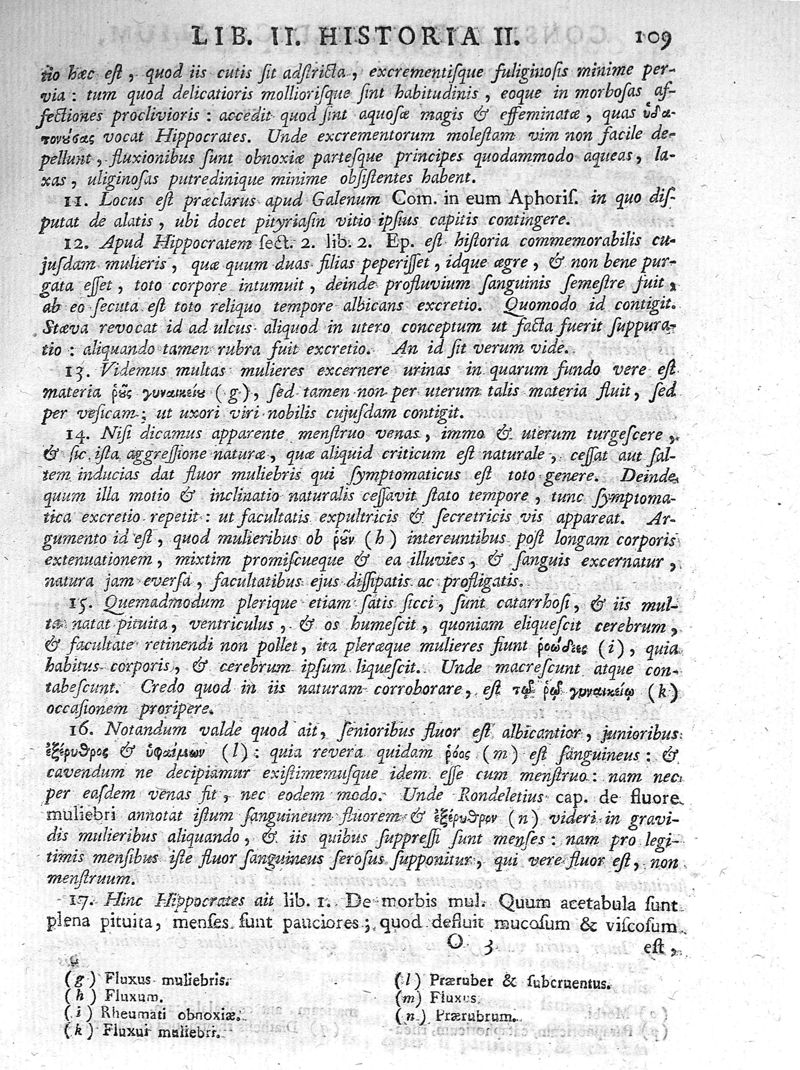 LIB. II. HISTORIA II. 109
tio hæc est, quod iis cutis sit adstricta, excrementisque fuliginosis minime per-
via: tum quod delicatioris molliorisque sint habitudinis, eoque in morbosas af-
fectiones proclivioris: accedit quod sint aquosæ magis & effeminatæ, quas
vocat Hippocrates. Unde excrementorum molestam vim non facile de-
pellunt, fluxionibus sunt obnoxiæ partesque principes quodammodo aqueas, la-
xas, uliginosas putredinique minime obsistentes habent.
11. Locus est præclarus apud Galenum Com. in eum Aphoris. in quo dis-
putat de alatis, ubi docet pityriasin vitio ipsius capitis contingere.
12. Apud Hippocratem sect. 2. lib. 2. Ep. est historia commemorabilis cu-
jusdam mulieris, quæ quum duas filias peperisset, idque ægre, & non bene pur-
gata esset, toto corpore intumuit, deinde profluvium sanguinis semestre fuit,
ab eo secuta est toto reliquo tempore albicans excretio. Quomodo id contigit.
Stæva revocat id ad ulcus aliquod in utero conceptum ut facta fuerit suppura-
tio: aliquando tamen rubra fuit excretio. An id sit verum vide.
13. Videmus multas mulieres excernere urinas in quarum fundo vere est
materia ῥοῦς γυναικείυ (g), sed tamen non per uterum talis materia fluit, sed
per vesicam; ut uxori viri nobilis cujusdam contigit.
14. Nisi dicamus apparente menstruo venas, immo & uterum turgescere,
& sic ista aggressione naturæ, quæ aliquid criticum est naturale, cessat aut sal-
tem inducias dat fluor muliebris qui symptomaticus est toto genere. Deinde
quum illa motio & inclinatio naturalis cessavit stato tempore, tunc symptoma-
tica excretio repetit: ut facultatis expultricis & secretricis vis appareat. Ar-
gumento id est, quod mulieribus ob ῥοῦν (h) intereuntibus post longam corporis
extenuationem, mixtim promiscueque & ea illuvies, & sanguis excernatur,
natura jam eversâ, facultatibus ejus dissipatis ac profligatis.
15. Quemadmodum plerique etiam satis sicci, sunt catarrhosi, & iis mul-
ta natat pituita, ventriculus, & os humescit, quoniam eliquescit cerebrum,
& facultate retinendi non pollet, ita pleræque mulieres fiunt ῥοώδεις (i), quia
habitus corporis, & cerebrum ipsum liquescit. Unde macrescunt atque con-
tabescunt. Credo quod in iis naturam corroborare, est τῷ ῥῷ γυναικείῳ (k)
occasionem proripere.
16. Notandum valde quod ait, senioribus fluor est albicantior, junioribus
ἐξέρυθρος & ὑφαίμων (l): quia revera quidam ῥόος (m) est sanguineus: &
cavendum ne decipiamur existimemusque idem esse cum menstruo: nam nec
per easdem venas fit, nec eodem modo. Unde Rondeletius cap. de fluore
muliebri annotat istum sanguineum fluorem & ἐξέρυθρον (n) videri in gravi-
dis mulieribus aliquando, & iis quibus suppressi sunt menses: nam pro legi-
timis mensibus iste fluor sanguineus serosus supponitur, qui vere fluor est, non
menstruum.
17. Hinc Hippocrates ait lib. 1. De morbis mul. Quum acetabula sunt
plena pituita, menses sunt pauciores; quod defluit mucosum & viscosum
O 3 est,
(g) Fluxus muliebris.
(h) Fluxum.
(i) Rheumati obnoxiæ.
(k) Fluxui muliebri.
(l) Præruber & subcruentus.
(m) Fluxus.
(n) Prærubrum.